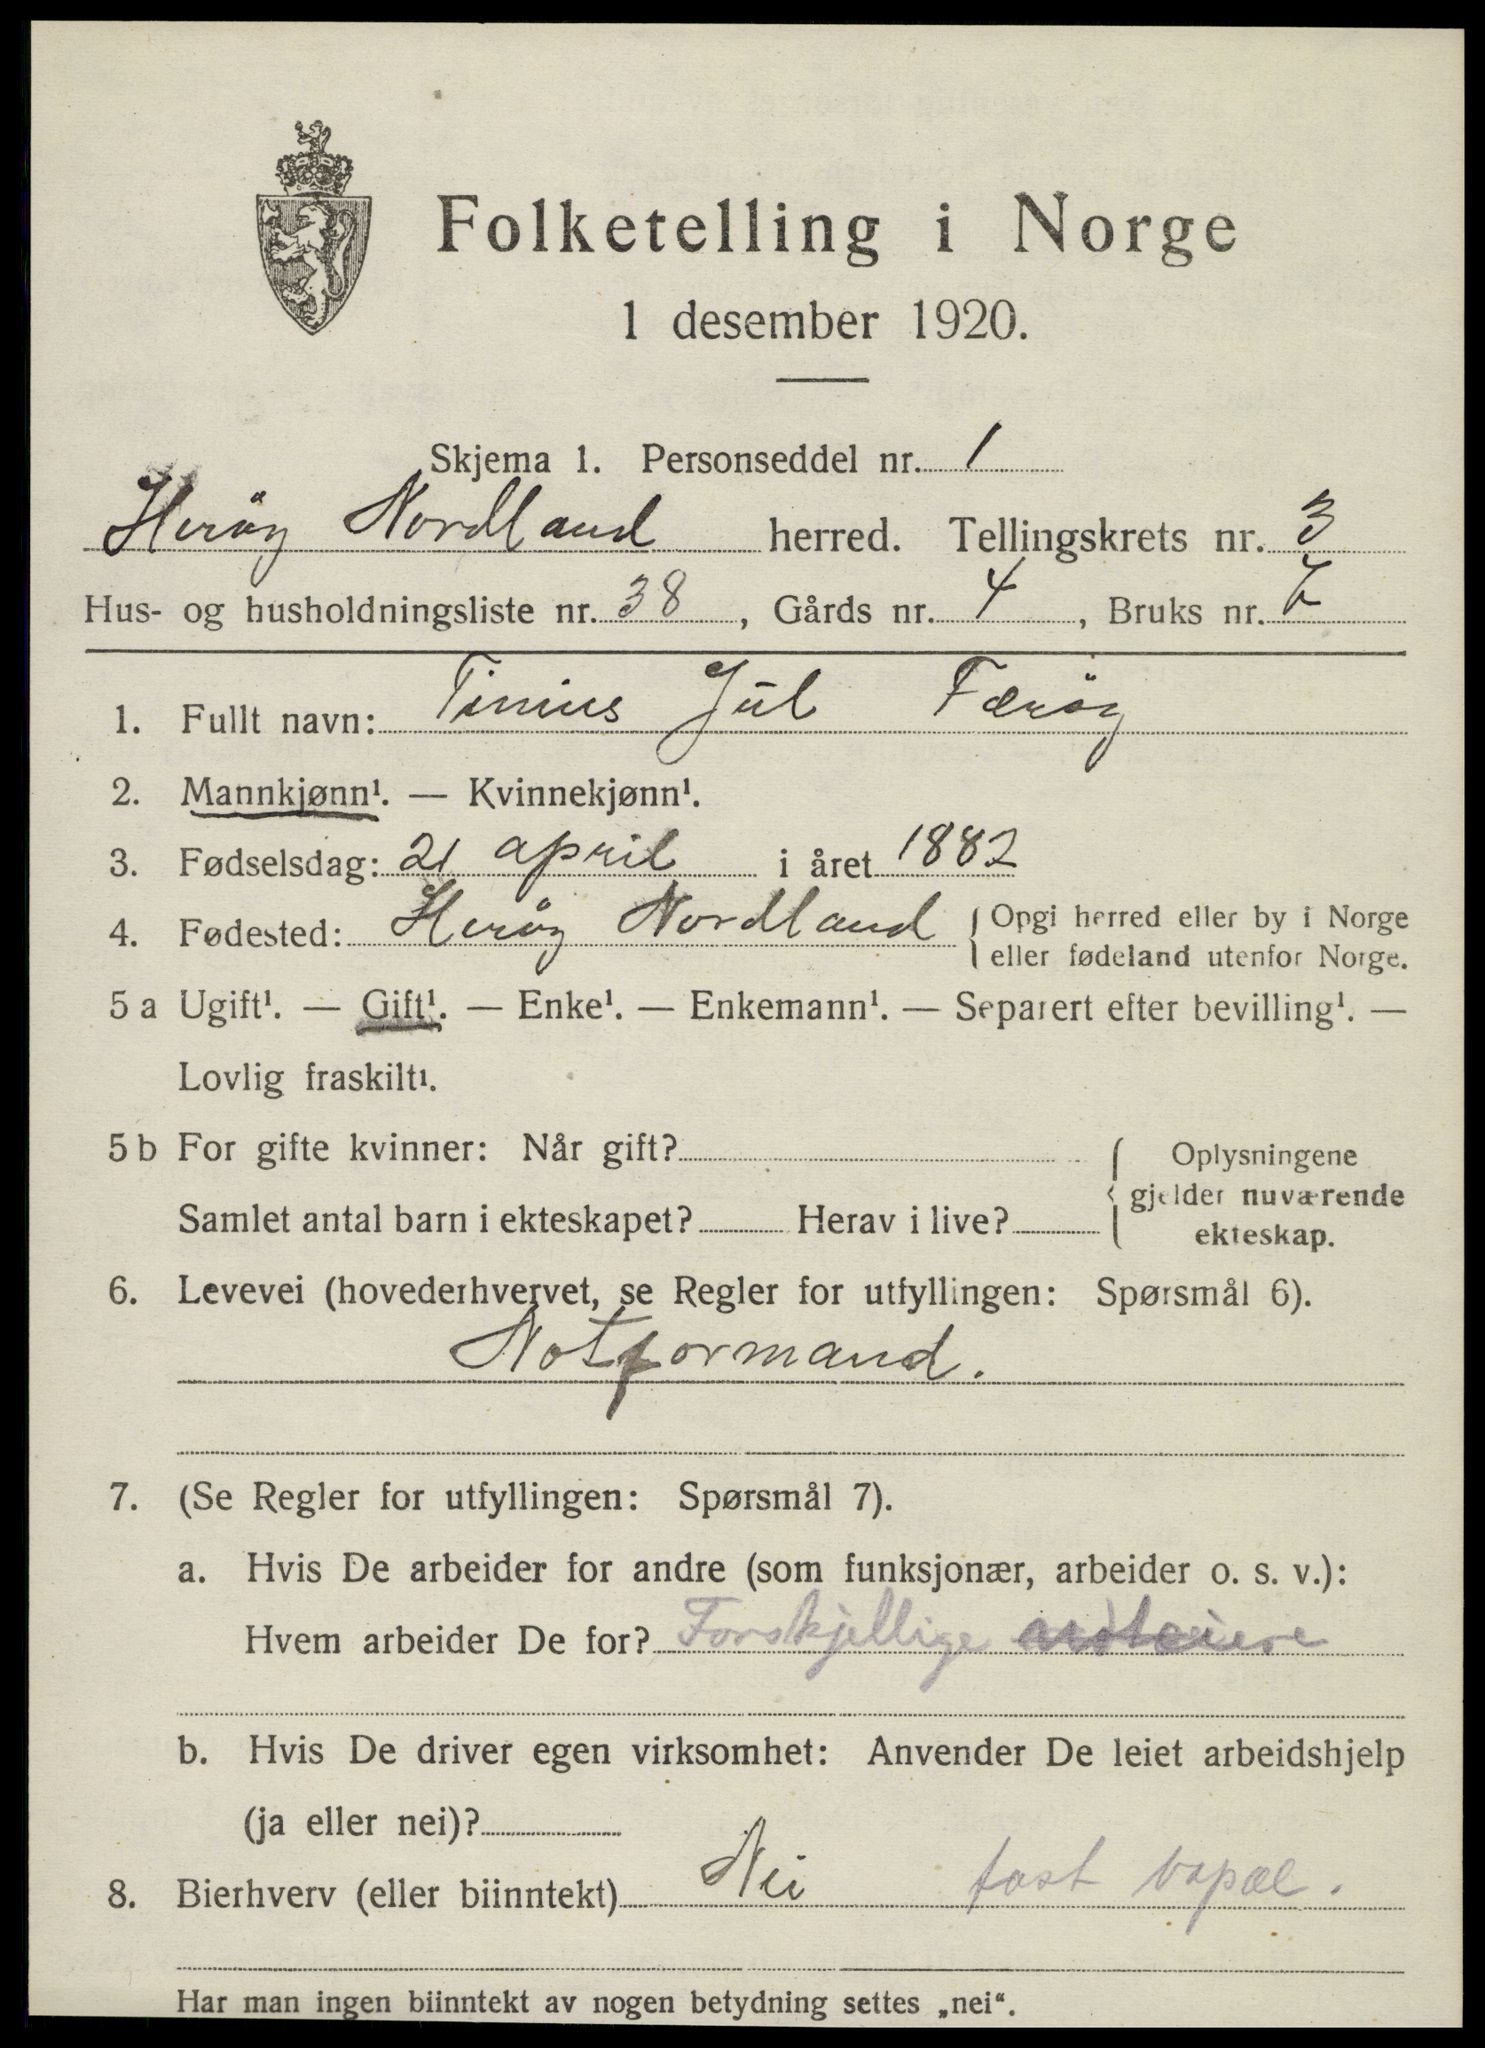 Folketelling i Norge
1 desember 1920.
Skjema 1. Personseddel nr. 1
Herøy Nordland herred. Tellingskrets nr. 3
Hus- og husholdningsliste nr. 38, Gårds nr. 4, Bruks nr. 7
1. Fullt navn: Tinius Jul Færøy
2. Mannkjønn¹. — Kvinnekjønn¹.
3. Fødselsdag: 21 april i året 1882
4. Fødested: Herøy Nordland { Opgi herred eller by i Norge
eller fødeland utenfor Norge.
5 a Ugift¹. — Gift¹. — Enke¹. — Enkemann¹. — Separert efter bevilling¹. —
Lovlig fraskilt¹.
5 b For gifte kvinner: Når gift? { Oplysningene
gjelder nuværende
Samlet antal barn i ekteskapet? Herav i live?
ekteskap.
6. Levevei (hovederhvervet, se Regler for utfyllingen: Spørsmål 6).
Notformand.
7. (Se Regler for utfyllingen: Spørsmål 7).
a. Hvis De arbeider for andre (som funksjonær, arbeider o. s. v.):
Hvem arbeider De for? Forskjellige noteiere
b. Hvis De driver egen virksomhet: Anvender De leiet arbeidshjelp
(ja eller nei)?
8. Bierhverv (eller biinntekt) Nei fast bopæl.
Har man ingen biinntekt av nogen betydning settes „nei“.